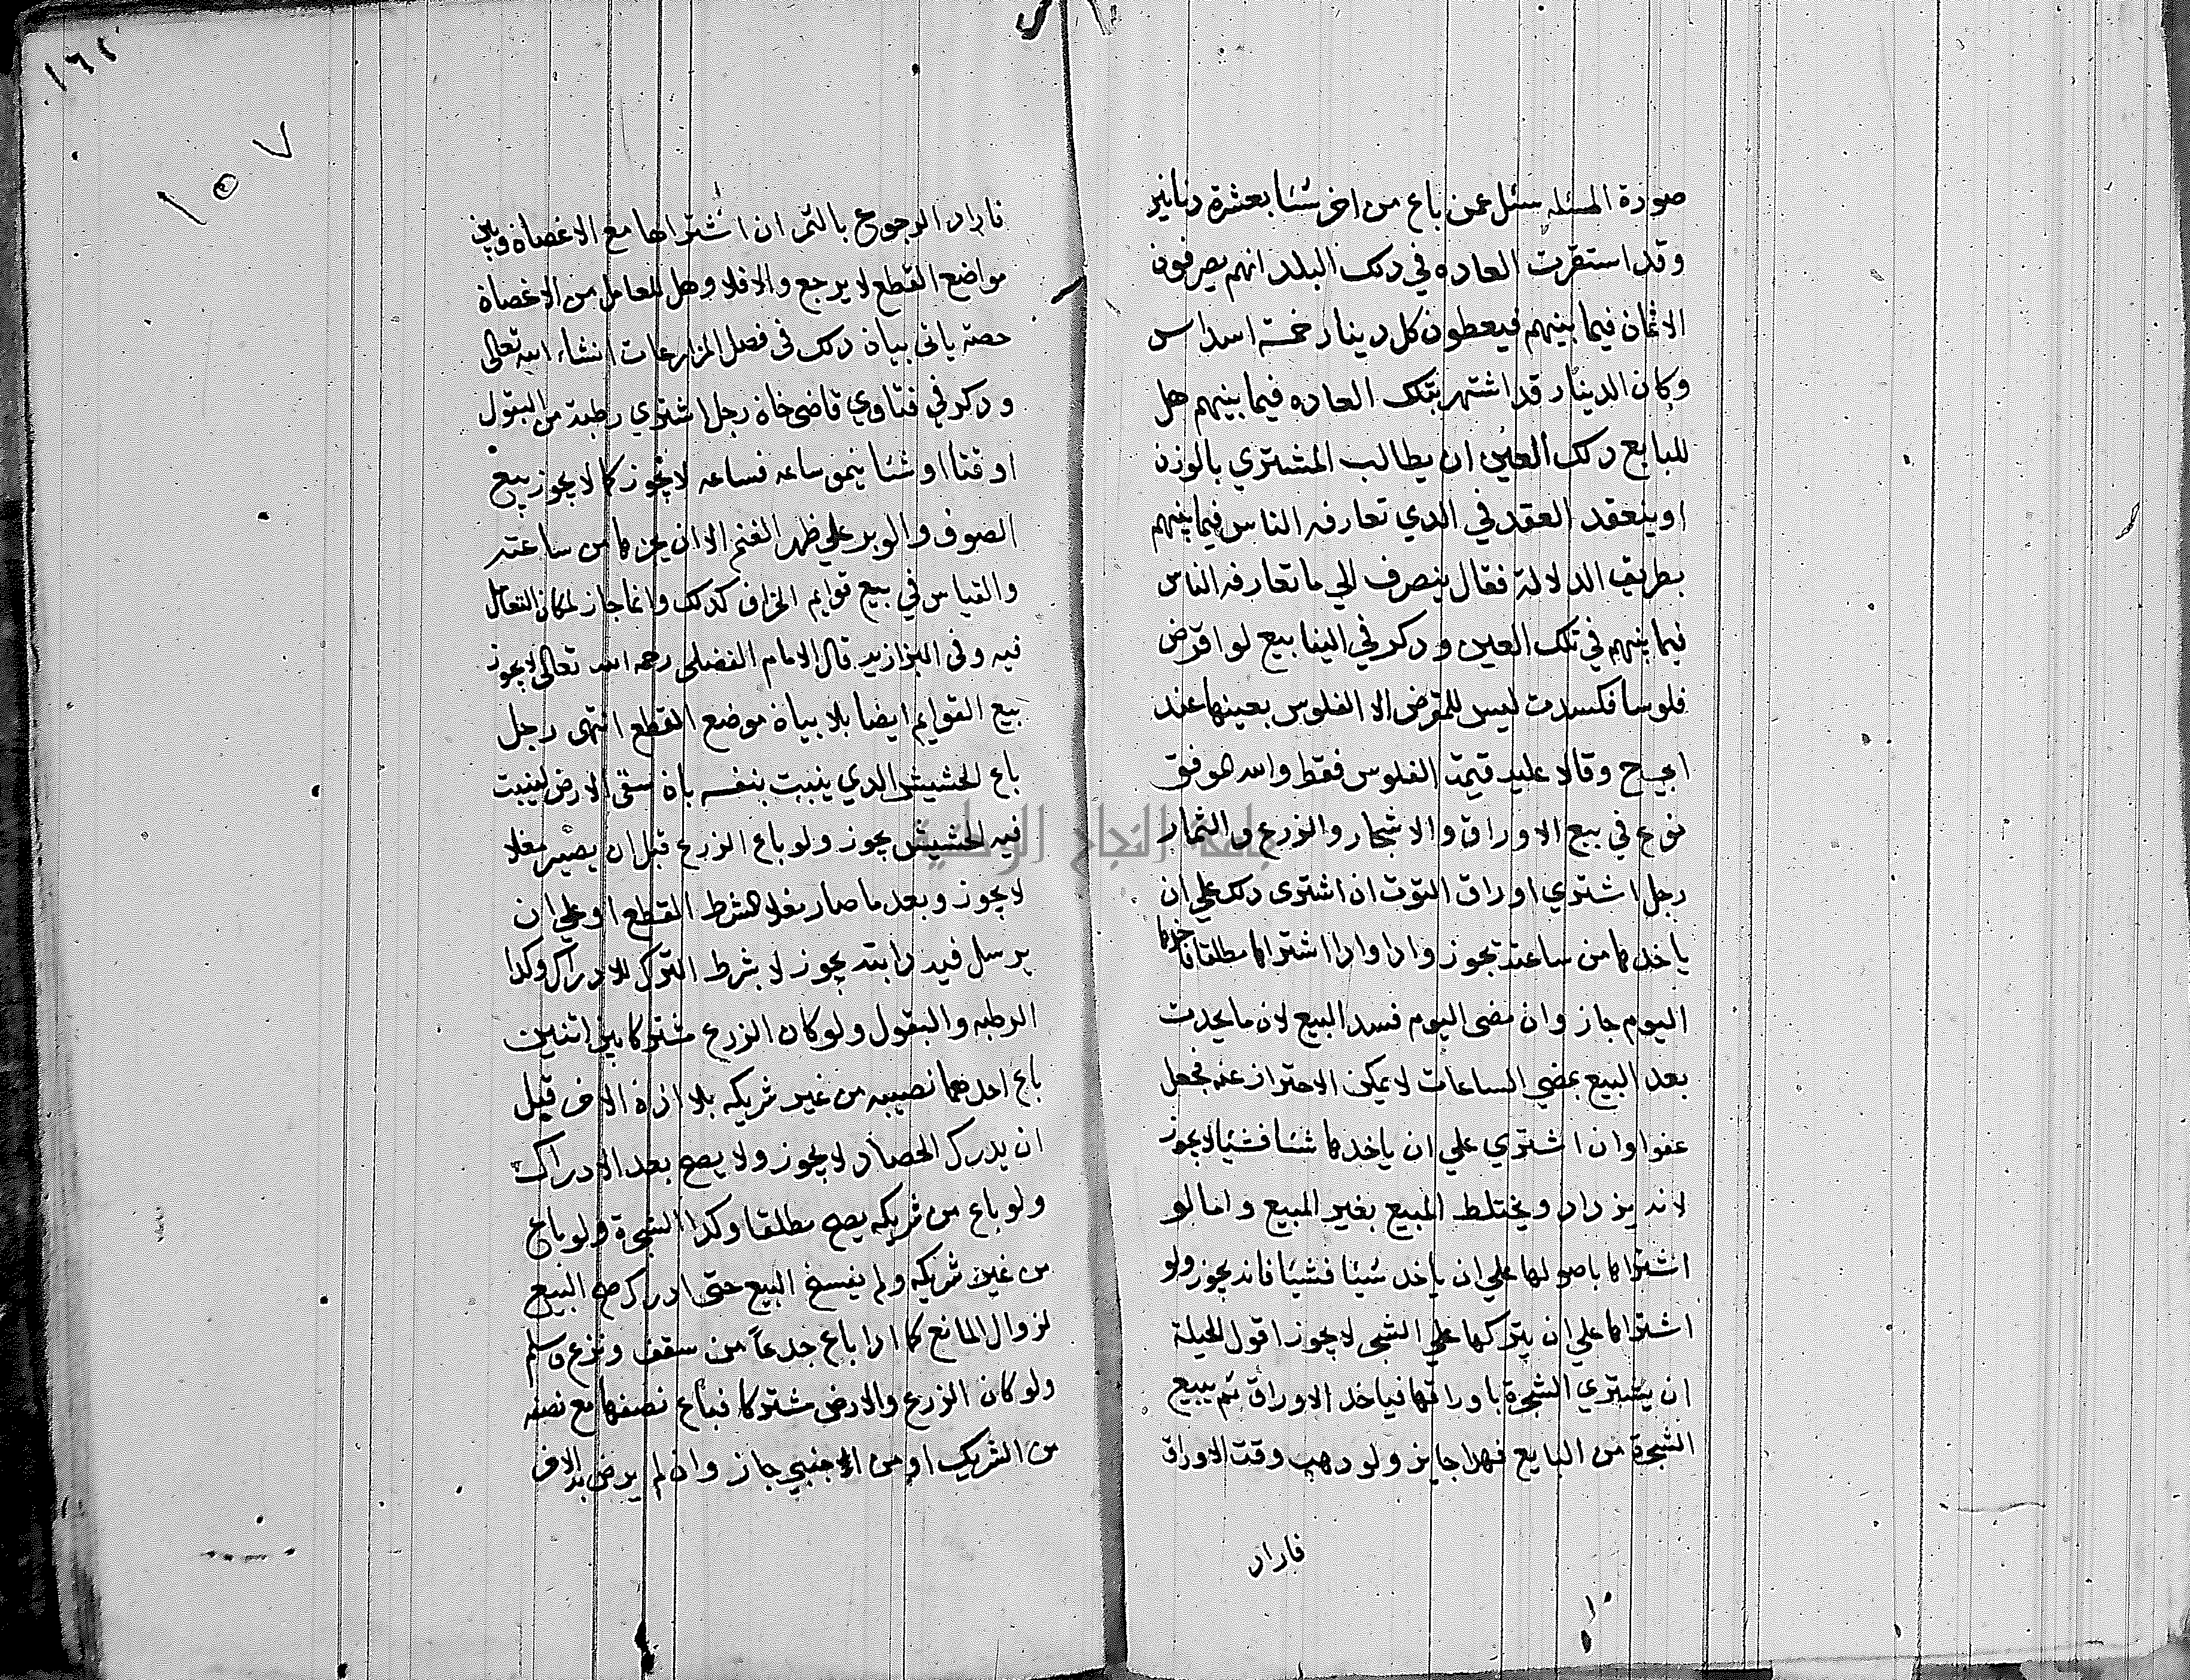 صورة المسئله سئل عمن باع من اخر شئا بعشرة دنانير
وقد استقرت العاده في دلك البلد انهم يصرفون
الاثمان فيما بينهم فيعطون كل دينار خمسة اسداس
وكان الدينار قد اشتهر بتلك العاده فيما بينهم هل
للبايع دلك العين ان يطالب المشتري بالوزن
او ينعقد العقد في الدي تعارفه الناس فيما بينهم
بطريق الدلالة فقال ينصرف الي ما تعارفه الناس
فيما بينهم في تلك العين ودكر في الينابيع لو اقرض
فلوسا فكسدت ليس للمقرض الا الفلوس بعينها عند
ابي ح وقالا عليه قيمة الفلوس فقط والله موفق
نوع في بيع الاوراق والاشجار والزرع والثمار
رجل اشتري اوراق التوت ان اشترى دلك علي ان
ياخدها من ساعته تجوز وادا وادا اشتراها مطلقا فاخدها
اليوم جاز وان مضى اليوم فسد البيع لان ما يحدث
بعد البيع بمضي الساعات لا يمكن الاحتراز عنه فجعل
عفوا وان اشتري علي ان ياخدها شئا فشئا لا يجوز
لانه يزداد ويختلط المبيع بغير المبيع واما لو
اشتراها باصولها علي ان ياخد شيئا فشيئا فانه يجوز ولو
اشتراها علي ان يتركها علي الشجر لا يجوز اقول الحيلة
ان يشتري الشجرة باوراقها فياخد الاوراق ثم يبيع
الشجرة من البايع فهدا جايز ولو دهب وقت الاوراق
فاراد
١٦٢
١٥٧
فاراد الرجوع بالثمر ان اشتراها مع الاغصان وبين
مواضع القطع لا يرجع والا فلا وهل للمعامل من الاغصان
حصة ياتى بيان دلك فى فصل المزارعات انشاء الله تعالى
ودكر في فتاوي قاضى خان رجل اشتري رطبة من البقول
او قثا او شئا ينمو ساعه فساعه لا يجوز كما لا يجوز بيع
الصوف والوبر علي ظهر الغنم الا ان يجزها من ساعته
والقياس في بيع قوايم الخلاف كدلك وانما جاز لمكان التعامل
فيه وفى البزازيه قال الامام الفضلى رحمه الله تعالى لا يجوز
بيع القوايم ايضا بلا بيان موضع القطع انتهى رجل
باع الحشيش الدي ينبت بنفسه بان سقى الارض لينبت
فيه الحشيش يجوز ولو باع الزرع قبل ان يصير بقلا
لا يجوز وبعد ما صار بقلا بشرط القطع او علي ان
يرسل فيه دابته يجوز لا بشرط الترك للادراك وكدا
الرطبه والبقول ولو كان الزرع مشتركا بين اثنين
باع احدهما نصيبه من غير شريكه بلا ادن الاخر قبل
ان يدرك الحصاد لا يجوز ولا يصح بعد الادراك
ولو باع من شريكه يصح مطلقا وكدا الشجرة ولو باع
من غير شريكه ولم يفسخ البيع حتى ادرك صح البيع
لزوال المانع كما ادا باع جدعاً من سقف ونزع وسلم
ولو كان الزرع والارض مشتركا فباع نصفها مع نصفه
من الشريك او من الاجنبي جاز وان لم يرض به الاخر
جامعة النجاح الوطنية